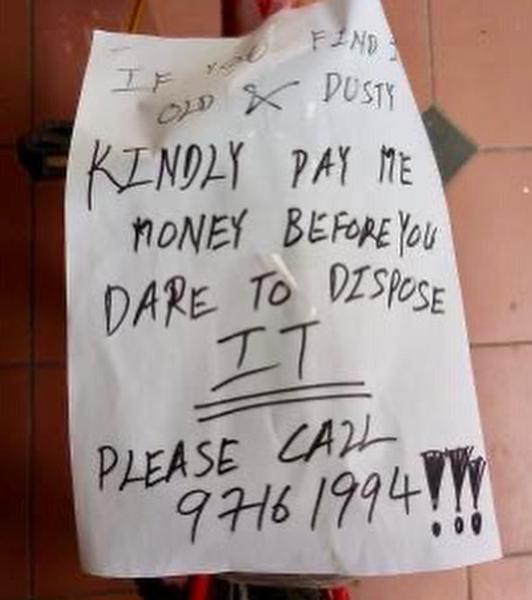 IF YOU FIND
OLD & DUSTY
KINDLY PAY ME
MONEY BEFORE YOU
DARE TO DISPOSE
IT
PLEASE CALL
97161994!!!